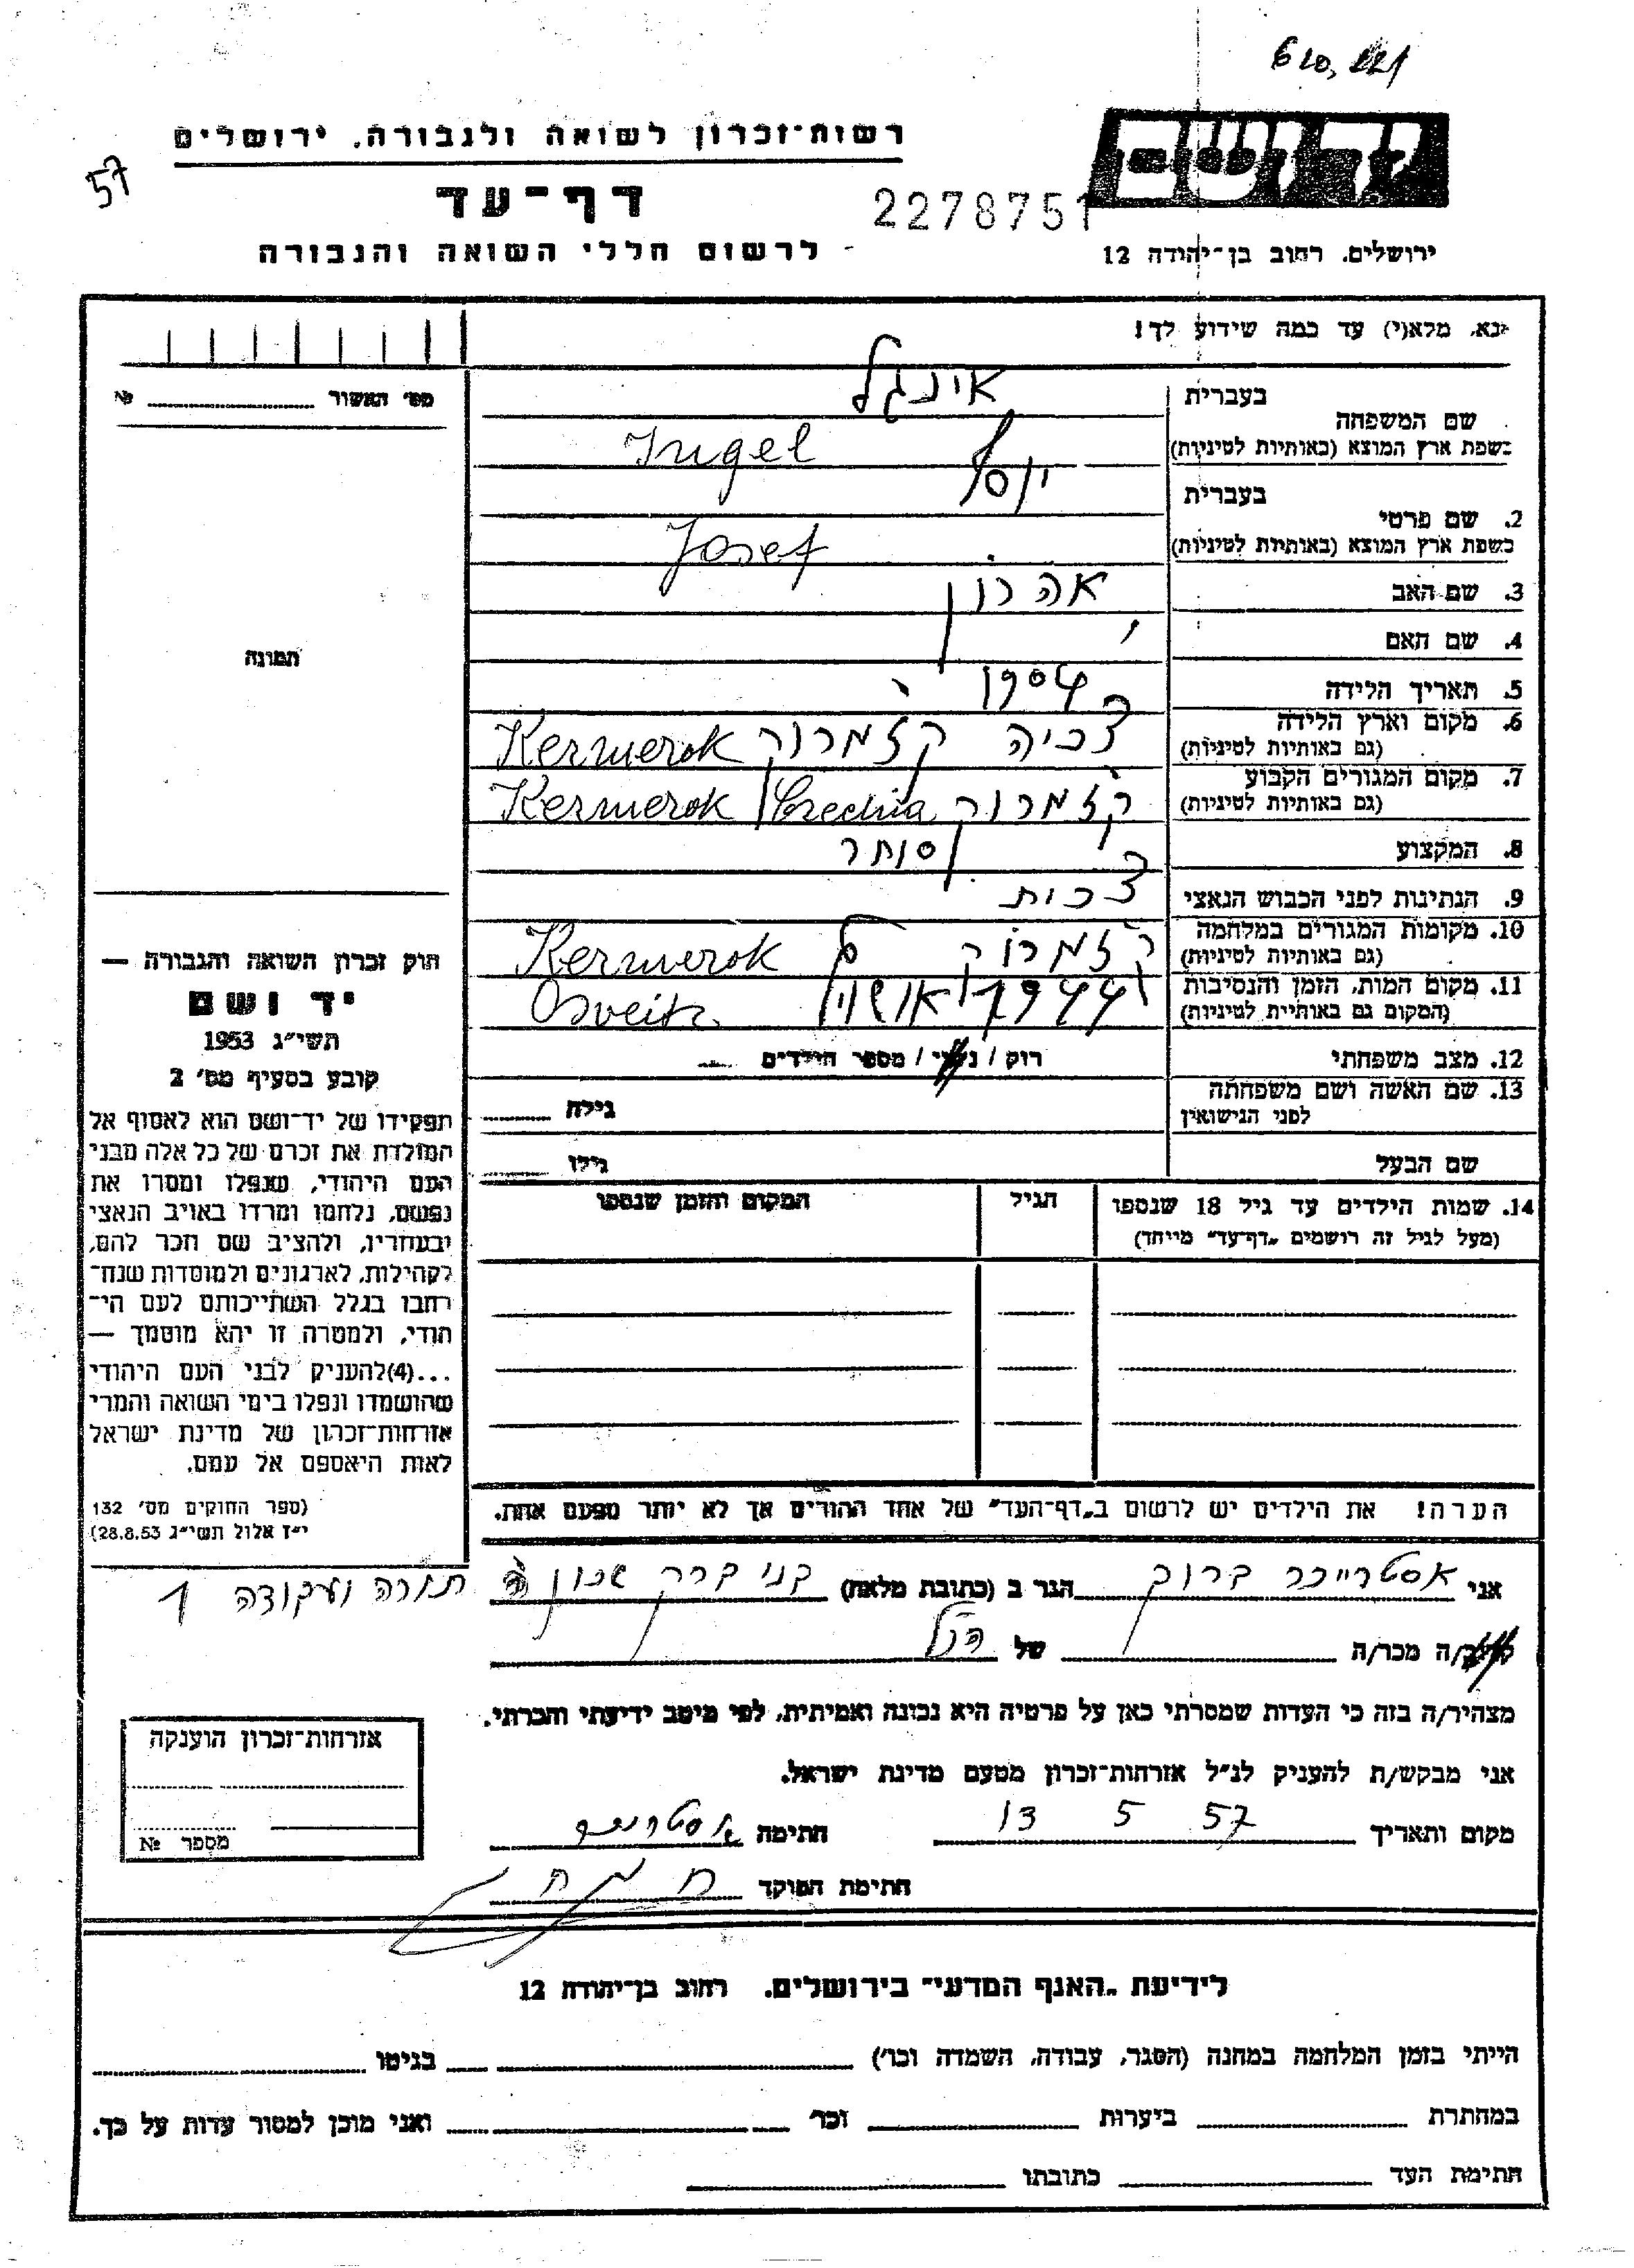 יד ושם
רשות־זכרון לשואה ולגבורה, ירושלים
57
דף־עד
2278751
לרשום חללי השואה והגבורה
ירושלים, רחוב בן־יהודה 12
נא, מלא(י) עד כמה שידוע לך!
מס׳ האשור № 
בעברית אינגל
שם המשפחה
בשפת ארץ המוצא (באותיות לטיניות) Ingel
בעברית יוסף
2. שם פרטי
בשפת ארץ המוצא (באותיות לטיניות) Josef
3. שם האב אהרון
4. שם האם
תמונה
5. תאריך הלידה 1904
6. מקום וארץ הלידה צכיה קזמרוק Kermerok
(גם באותיות לטיניות)
7. מקום המגורים הקבוע קזמרוק Kermerok / Czechia
(גם באותיות לטיניות)
8. המקצוע סוחר
9. הנתינות לפני הכבוש הנאצי צכית
10. מקומות המגורים במלחמה קזמרוק Kermerok
(גם באותיות לטיניות)
11. מקום המות, הזמן והנסיבות 1944 אושויץ Osveitz
(המקום גם באותיות לטיניות)
12. מצב משפחתי רוק / נשוי / מספר הילדים
13. שם האשה ושם משפחתה
לפני הנישואין גילה
שם הבעל גילו
חוק זכרון השואה והגבורה —
יד ושם
תשי״ג 1953
קובע בסעיף מס׳ 2
תפקידו של יד־ושם הוא לאסוף אל
המולדת את זכרם של כל אלה מבני
העם היהודי, שנפלו ומסרו את
נפשם, נלחמו ומרדו באויב הנאצי
ובעוזריו, ולהציב שם וזכר להם,
לקהילות, לארגונים ולמוסדות שנח־
רבו בגלל השתייכותם לעם הי־
הודי, ולמטרה זו יהא מוסמך —
...(4)להעניק לבני העם היהודי
שהושמדו ונפלו בימי השואה והמרי
אזרחות־זכרון של מדינת ישראל
לאות היאספם אל עמם.
(ספר החוקים מס׳ 132
י״ז אלול תשי״ג 28.8.53)
14. שמות הילדים עד גיל 18 שנספו הגיל המקום והזמן שנספו
(מעל לגיל זה רושמים „דף־עד״ מייחד)
הערה! את הילדים יש לרשום ב„דף־העד״ של אחד ההורים אך לא יותר מפעם אחת.
אני אסטרייכר ברוך הגר ב (כתובת מלאה) בני ברק שכון תורה ועבודה 1
קרוב/ה מכר/ה של הנ״ל
מצהיר/ה בזה כי העדות שמסרתי כאן על פרטיה היא נכונה ואמיתית, לפי מיטב ידיעתי והכרתי.
אני מבקש/ת להעניק לנ״ל אזרחות־זכרון מטעם מדינת ישראל.
מקום ותאריך 13 5 57 חתימה
חתימת הפוקד
אזרחות־זכרון הוענקה
מספר №
לידיעת „האנף המדעי״ בירושלים, רחוב בן־יהודה 12
הייתי בזמן המלחמה במחנה (הסגר, עבודה, השמדה וכו׳) בגיטו
במחתרת ביערות וכו׳ ואני מוכן למסור עדות על כך.
חתימת העד כתובתו